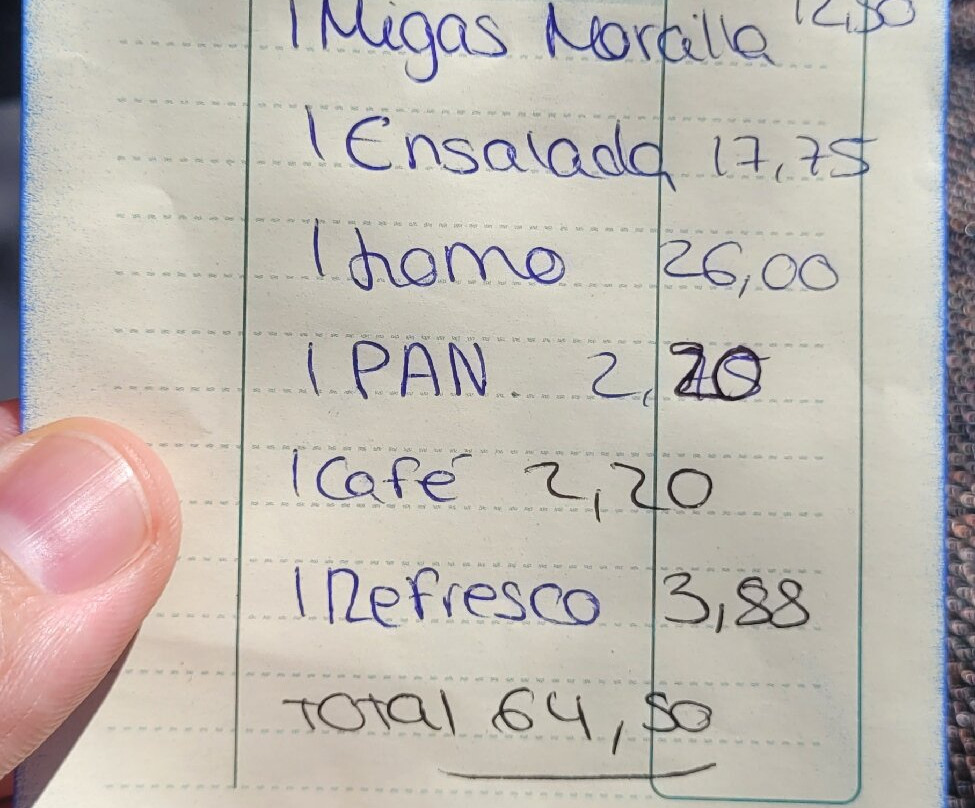 1 Migas Morcilla 12,50
1 Ensalada 17,75
1 Lomo 26,00
1 PAN. 2,20
1 Café 2,20
1 Refresco 3,88
TOTAL 64,50